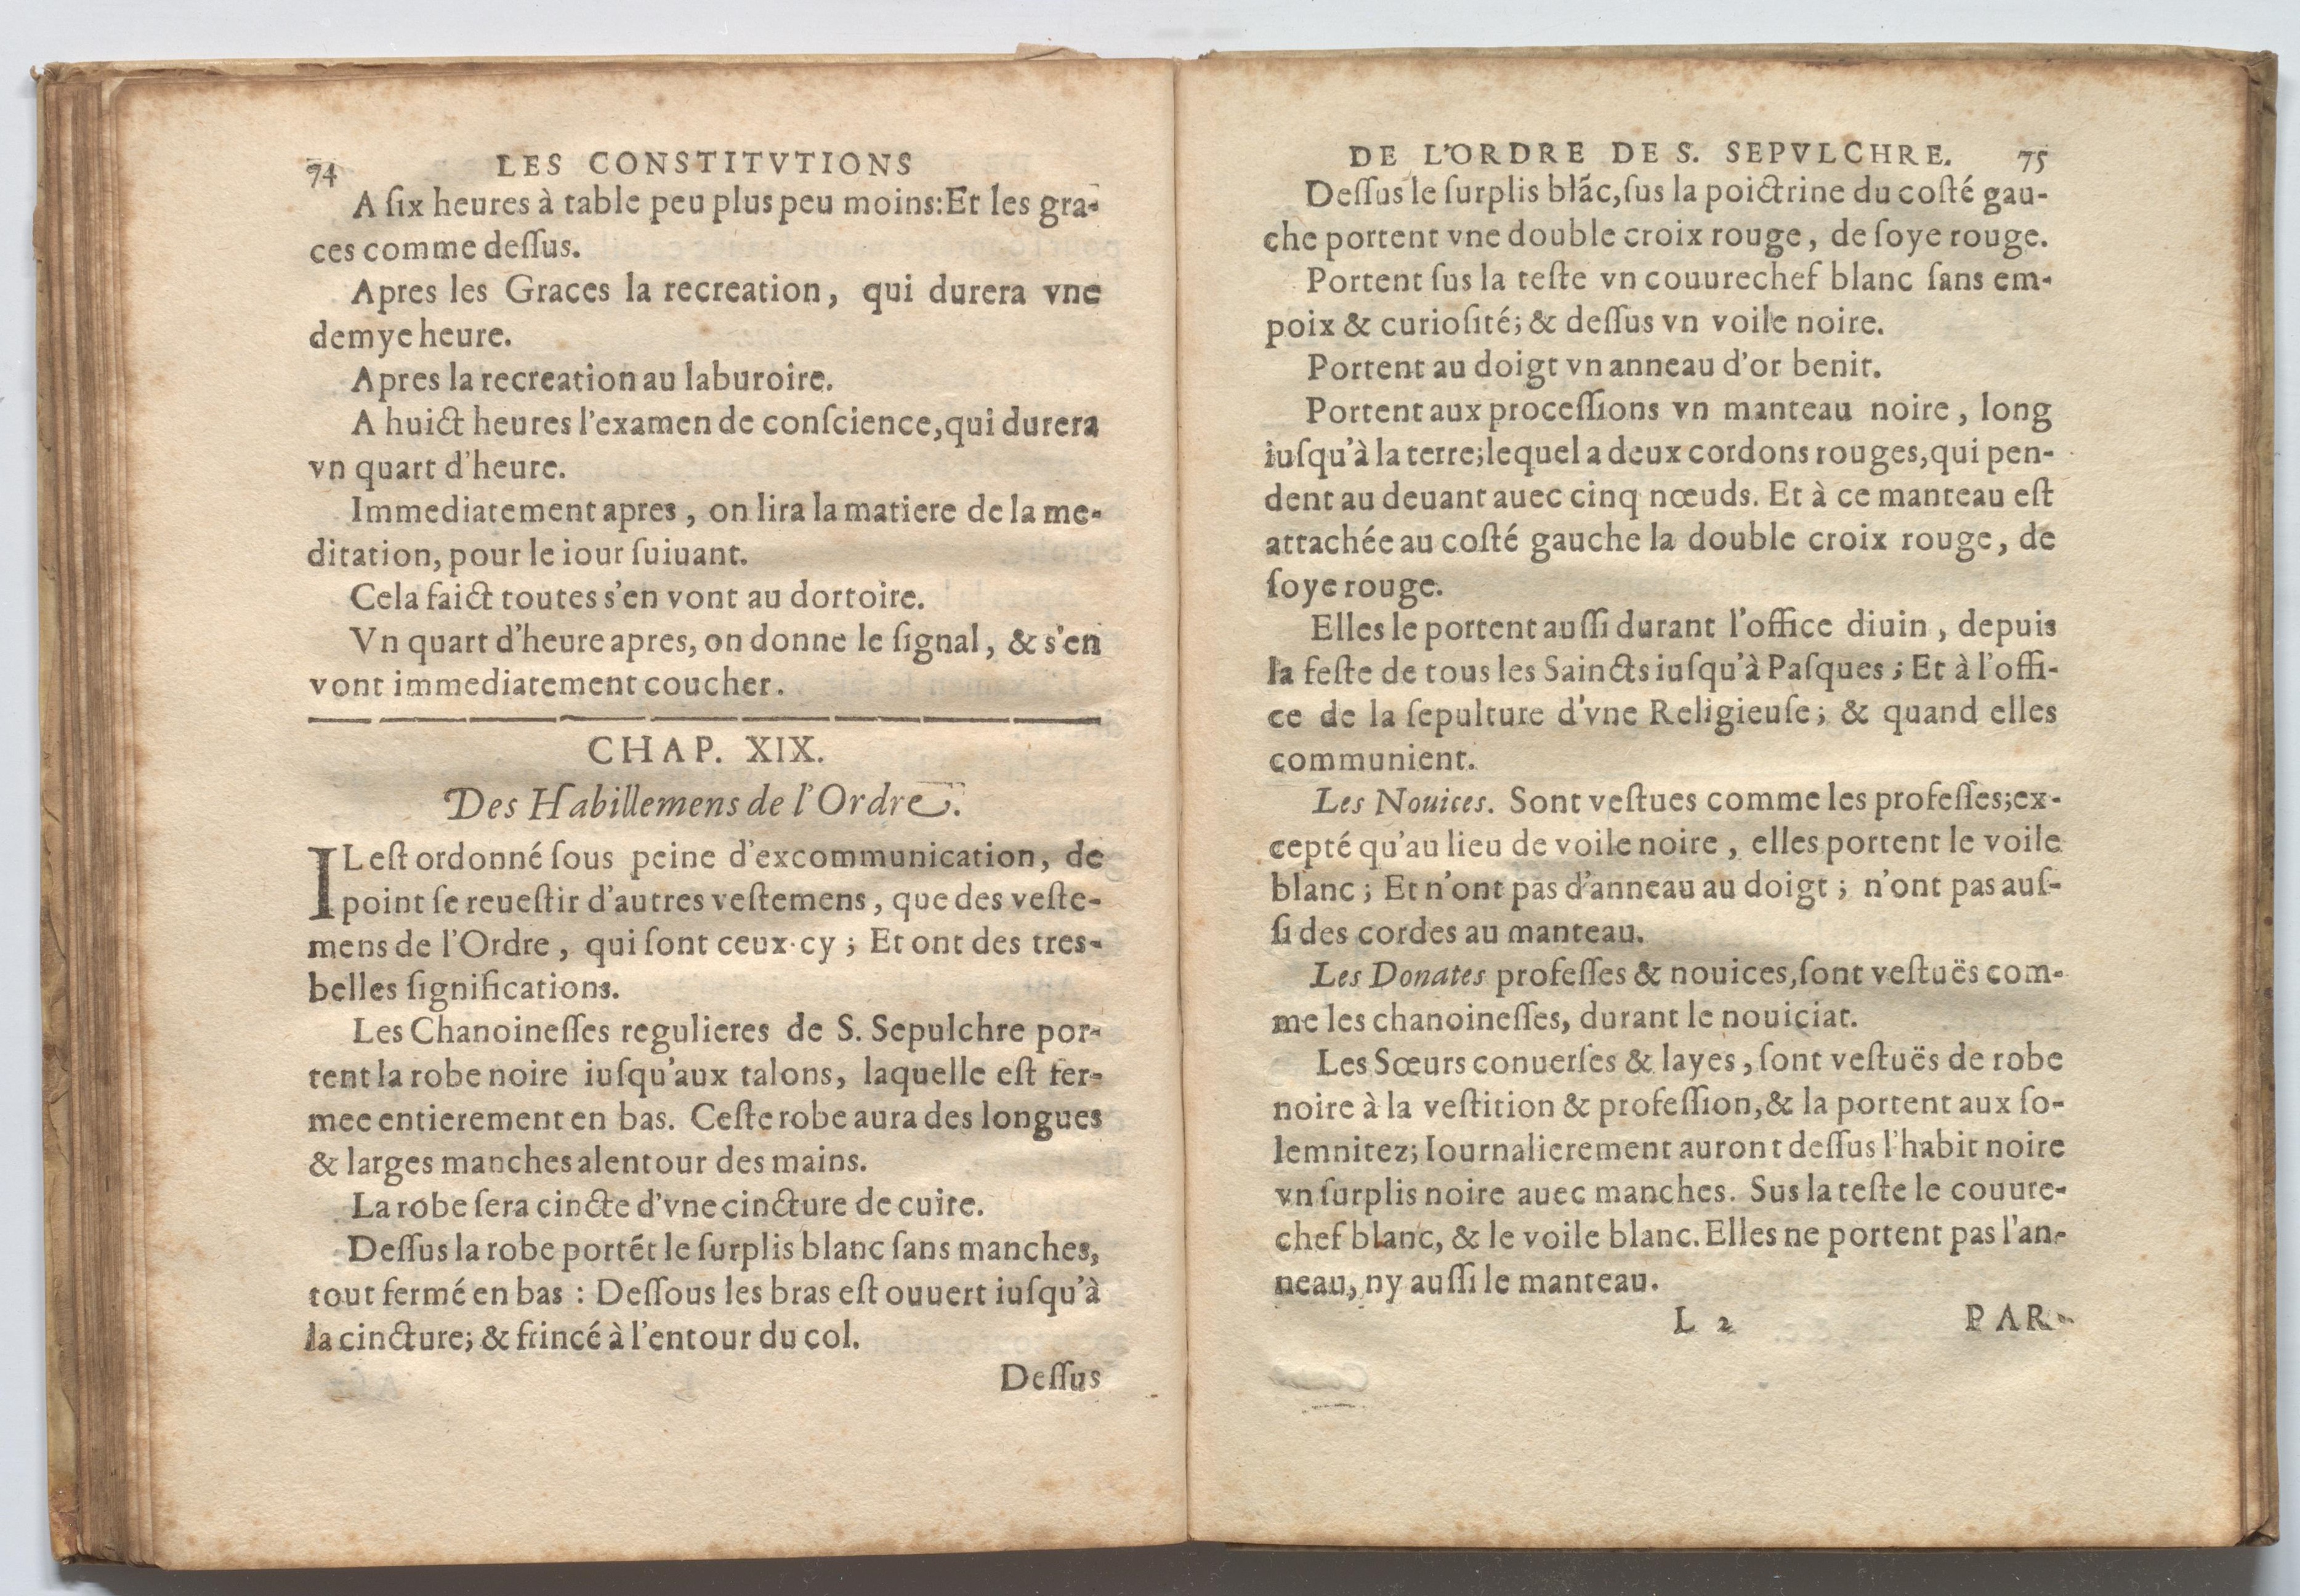 74 LES CONSTITVTIONS
A ſix heures à table peu plus peu moins: Et les gra-
ces comme deſſus.
Apres les Graces la recreation, qui durera vne
demye heure.
Apres la recreation au laburoire.
A huict heures l'examen de conſcience, qui durera
vn quart d'heure.
Immediatement apres, on lira la matiere de la me-
ditation, pour le iour ſuiuant.
Cela faict toutes s'en vont au dortoire.
Vn quart d'heure apres, on donne le ſignal, & s'en
vont immediatement coucher.
CHAP. XIX.
Des Habillemens de l'Ordre.
IL eſt ordonné ſous peine d'excommunication, de
point ſe reueſtir d'autres veſtemens, que des veſte-
mens de l'Ordre, qui ſont ceux-cy; Et ont des tres-
belles ſignifications.
Les Chanoineſſes regulieres de S. Sepulchre por-
tent la robe noire iuſqu'aux talons, laquelle eſt fer-
mee entierement en bas. Ceſte robe aura des longues
& larges manches alentour des mains.
La robe ſera cincte d'vne cincture de cuire.
Deſſus la robe portẽt le ſurplis blanc ſans manches,
tout fermé en bas : Deſſous les bras eſt ouuert iuſqu'à
la cincture; & frincé à l'entour du col.
Deſſus
DE L'ORDRE DE S. SEPVLCHRE. 75
Deſſus le ſurplis blãc, ſus la poictrine du coſté gau-
che portent vne double croix rouge, de ſoye rouge.
Portent ſus la teſte vn couurechef blanc ſans em-
poix & curioſité; & deſſus vn voile noire.
Portent au doigt vn anneau d'or benit.
Portent aux proceſſions vn manteau noire, long
iuſqu'à la terre; lequel a deux cordons rouges, qui pen-
dent au deuant auec cinq nœuds. Et à ce manteau eſt
attachée au coſté gauche la double croix rouge, de
ſoye rouge.
Elles le portent auſſi durant l'office diuin, depuis
la feſte de tous les Saincts iuſqu'à Paſques; Et à l'offi-
ce de la ſepulture d'vne Religieuſe; & quand elles
communient.
Les Nouices. Sont veſtues comme les profeſſes; ex-
cepté qu'au lieu de voile noire, elles portent le voile
blanc; Et n'ont pas d'anneau au doigt; n'ont pas auſ-
ſi des cordes au manteau.
Les Donates profeſſes & nouices, ſont veſtuës com-
me les chanoineſſes, durant le nouiciat.
Les Sœurs conuerſes & layes, ſont veſtuës de robe
noire à la veſtition & profeſſion, & la portent aux ſo-
lemnitez; Iournalierement auront deſſus l'habit noire
vn ſurplis noire auec manches. Sus la teſte le couure-
chef blanc, & le voile blanc. Elles ne portent pas l'an-
neau, ny auſſi le manteau.
L 2 PAR-